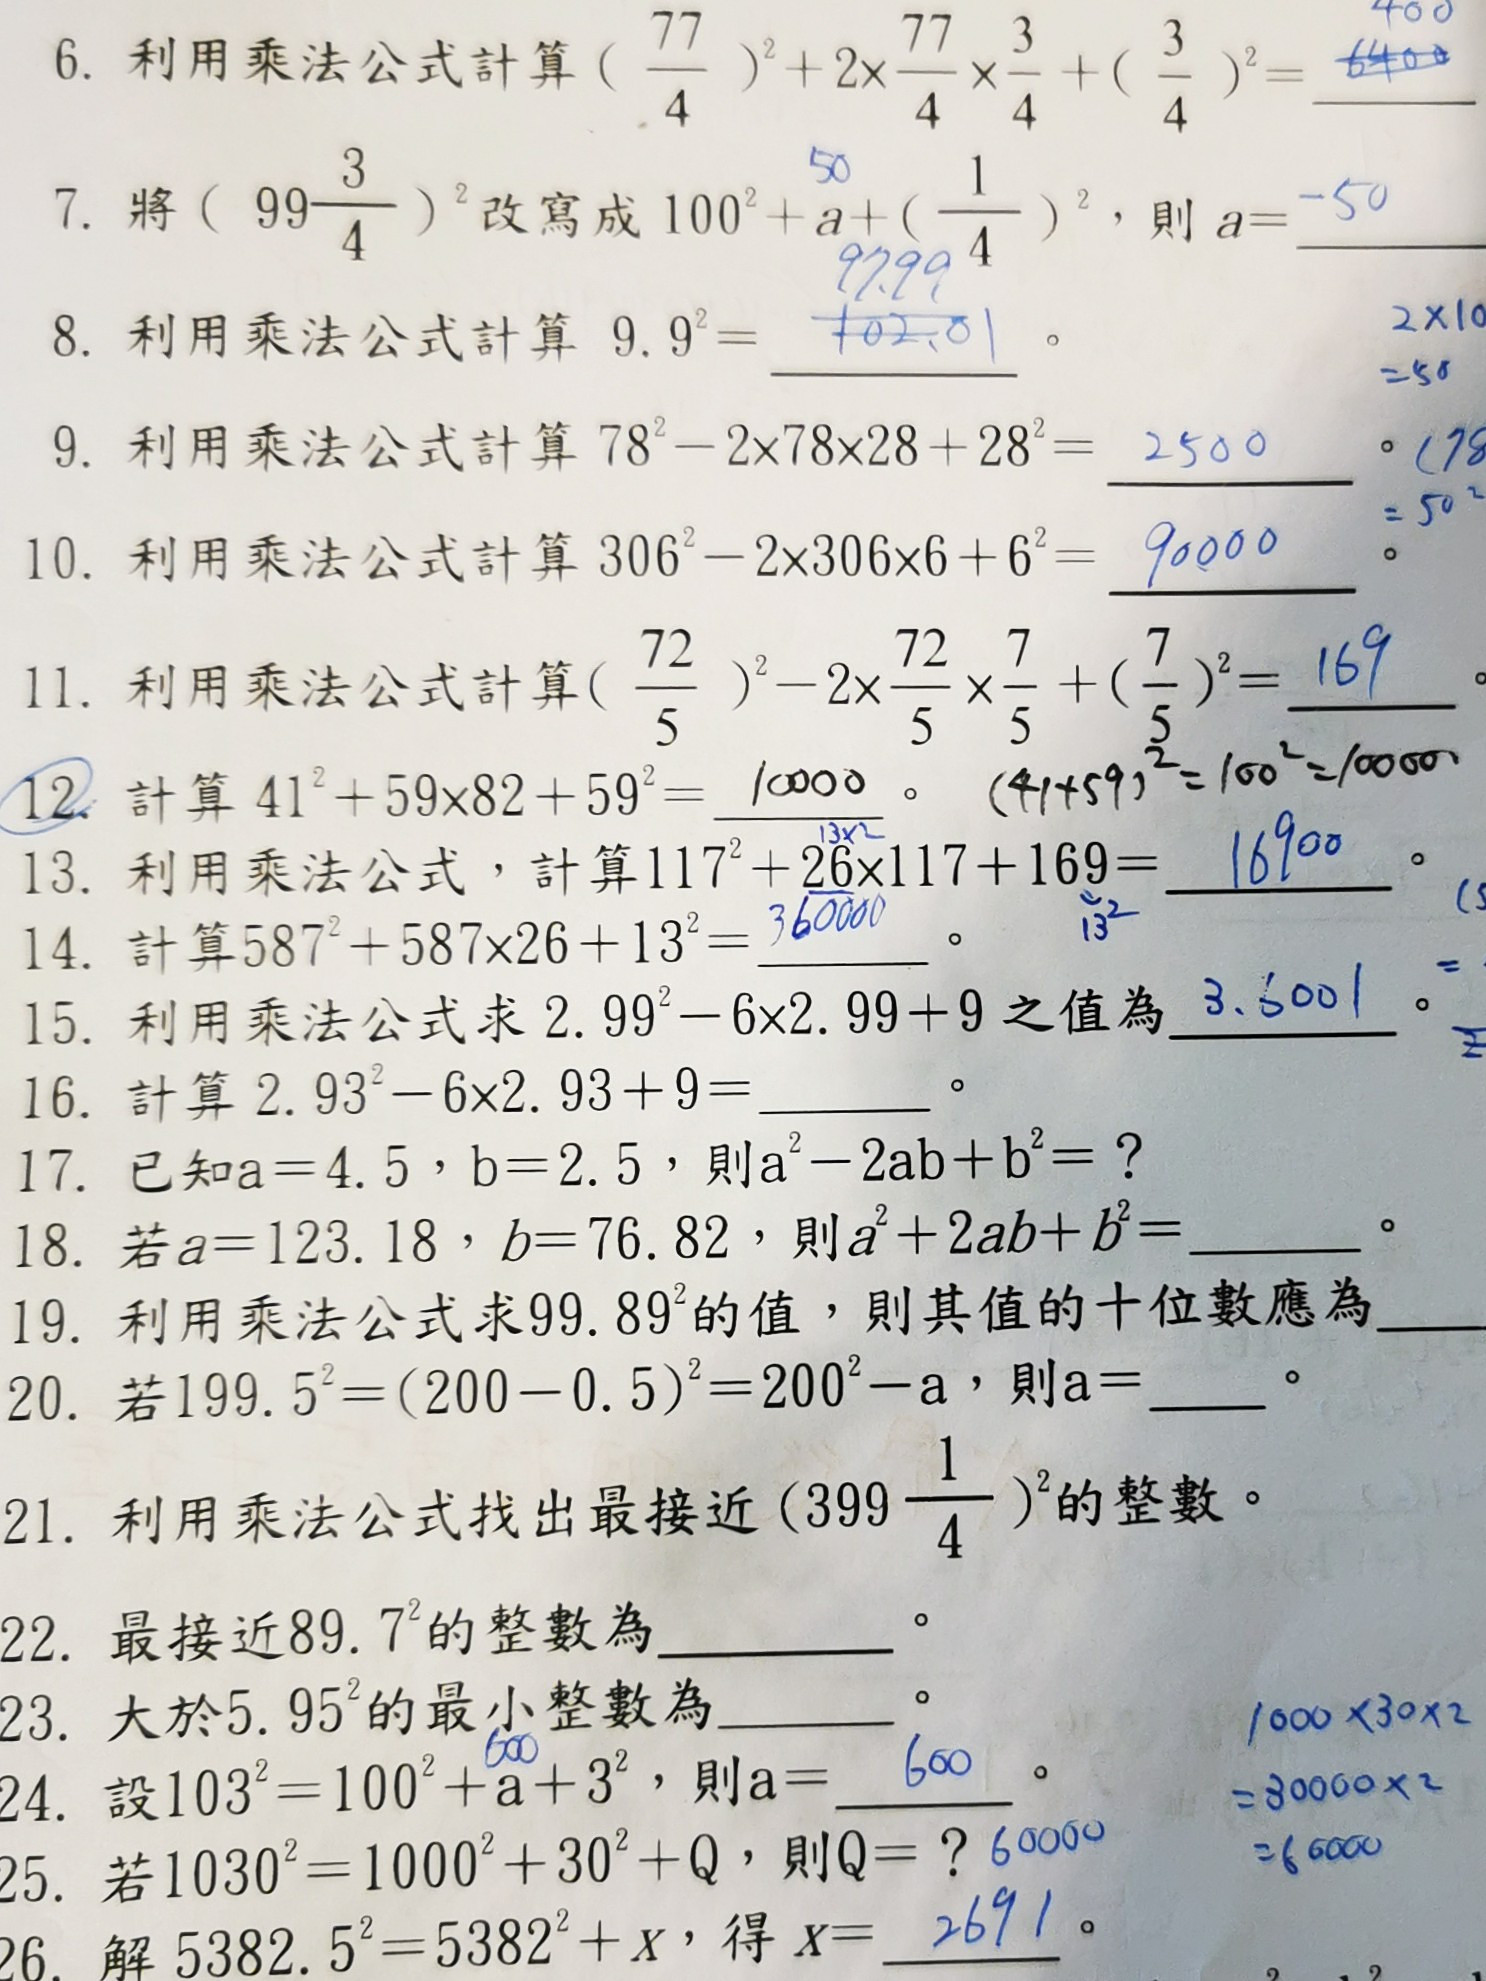 400
6. 利用乘法公式計算(77/4)²+2×77/4×3/4+(3/4)²= 6400
50
7. 將(99 3/4)²改寫成100²+a+(1/4)²,則 a= -50
97.99
8. 利用乘法公式計算 9.9²= 102.01 。
2×10
=50
9. 利用乘法公式計算 78²-2×78×28+28²= 2500 。 (78
=50²
10. 利用乘法公式計算 306²-2×306×6+6²= 90000 。
11. 利用乘法公式計算(72/5)²-2×72/5×7/5+(7/5)²= 169 。
12. 計算 41²+59×82+59²= 10000 。 (41+59)²=100²=10000
13×2
13. 利用乘法公式,計算117²+26×117+169= 16900 。
13²
14. 計算587²+587×26+13²= 360000 。
15. 利用乘法公式求 2.99²-6×2.99+9 之值為 3.6001 。
16. 計算 2.93²-6×2.93+9=______。
17. 已知a=4.5,b=2.5,則a²-2ab+b²=?
18. 若a=123.18,b=76.82,則a²+2ab+b²=______。
19. 利用乘法公式求99.89²的值,則其值的十位數應為____
20. 若199.5²=(200-0.5)²=200²-a,則a=____。
21. 利用乘法公式找出最接近(399 1/4)²的整數。
22. 最接近89.7²的整數為________。
23. 大於5.95²的最小整數為______。
600
24. 設103²=100²+a+3²,則a= 600 。
1000×30×2
=30000×2
=60000
25. 若1030²=1000²+30²+Q,則Q=? 60000
26. 解 5382.5²=5382²+x,得 x= 2691 。